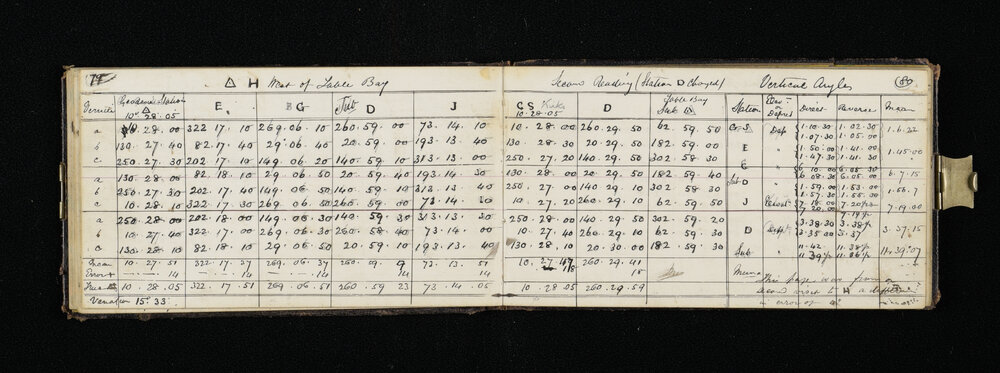 79
△ H West of Table Bay
Second Reading (Station D Changed)
Vertical Angles
80
Vernier
Geodesic Station △ 10.28.05
E
G
Sub D
J
CS
10.28.05
D
Table Bay Sub
Station
Elev or Depres
Direct
Reverse
Mean
a 10. 28. 00 322. 17. 10 269. 06. 10 260. 59. 00 73. 14. 10 10. 28. 00 260. 29. 50 62. 59. 50 Dep 1.10.30 1.02.30 1.6.22
b 130. 27. 40 82. 17. 40 29. 06. 40 20. 59. 00 193. 13. 40 130. 28. 30 20. 29. 50 182. 59. 00 E 1.50.00 1.41.00 1.45.00
c 250. 27. 30 202. 17. 10 149. 06. 20 140. 59. 10 313. 13. 00 250. 27. 20 140. 29. 50 302. 58. 30 G 1.47.30 1.41.30
a 130. 28. 00 82. 18. 10 29. 06. 50 20. 59. 40 193. 14. 30 130. 28. 00 20. 29. 50 182. 59. 40 Sub D 6.08.30 6.05.00 6.7.15
b 250. 27. 30 202. 17. 40 149. 06. 50 140. 59. 10 313. 13. 40 250. 27. 00 140. 29. 10 302. 58. 30 1.59.00 1.53.00 1.56.7
c 10. 28. 10 322. 17. 30 269. 06. 50 260. 59. 10 73. 14. 30 10. 27. 20 260. 29. 10 62. 59. 50 J 7.18.00 7.19.00
a 250. 28. 00 202. 18. 00 149. 06. 30 140. 59. 30 313. 13. 30 250. 28. 00 140. 29. 50 302. 59. 20 7.20.00
b 10. 27. 40 322. 17. 00 269. 06. 30 260. 58. 40 73. 13. 40 10. 27. 40 260. 29. 10 62. 59. 30 D 3.38.30 3.37.15
c 130. 28. 10 82. 18. 10 29. 06. 50 20. 59. 10 193. 13. 40 130. 28. 10 20. 30. 00 182. 59. 30 Sub 11.42 11.39.07
Mean 10. 27. 51 322. 17. 37 269. 06. 37 260. 59. 9 73. 13. 51 10. 27. 47 260. 29. 41
Error + 14 14 14 14 14 18 18
True 10. 28. 05 322. 17. 51 269. 06. 51 260. 59 23 73. 14. 05 10. 28. 05 260. 29. 59
Variation 15° 33'
This page was from a
second visit to H a
in error of